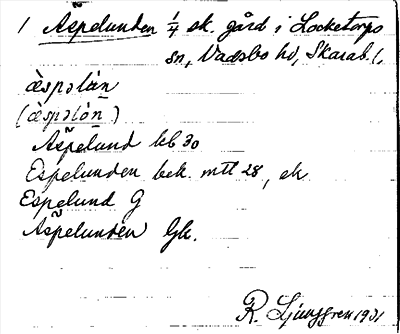 1 Aspelunden 1/4 sk. gård i Locketorps
sn, Vadsbo hd, Skarab. l.
àespəlún
(àespəlón)
Aspelund kb 30
Espelunden bek. mtl 28, ek
Espelund G
Aspelunden Gk.
R. Ljunggren 1931